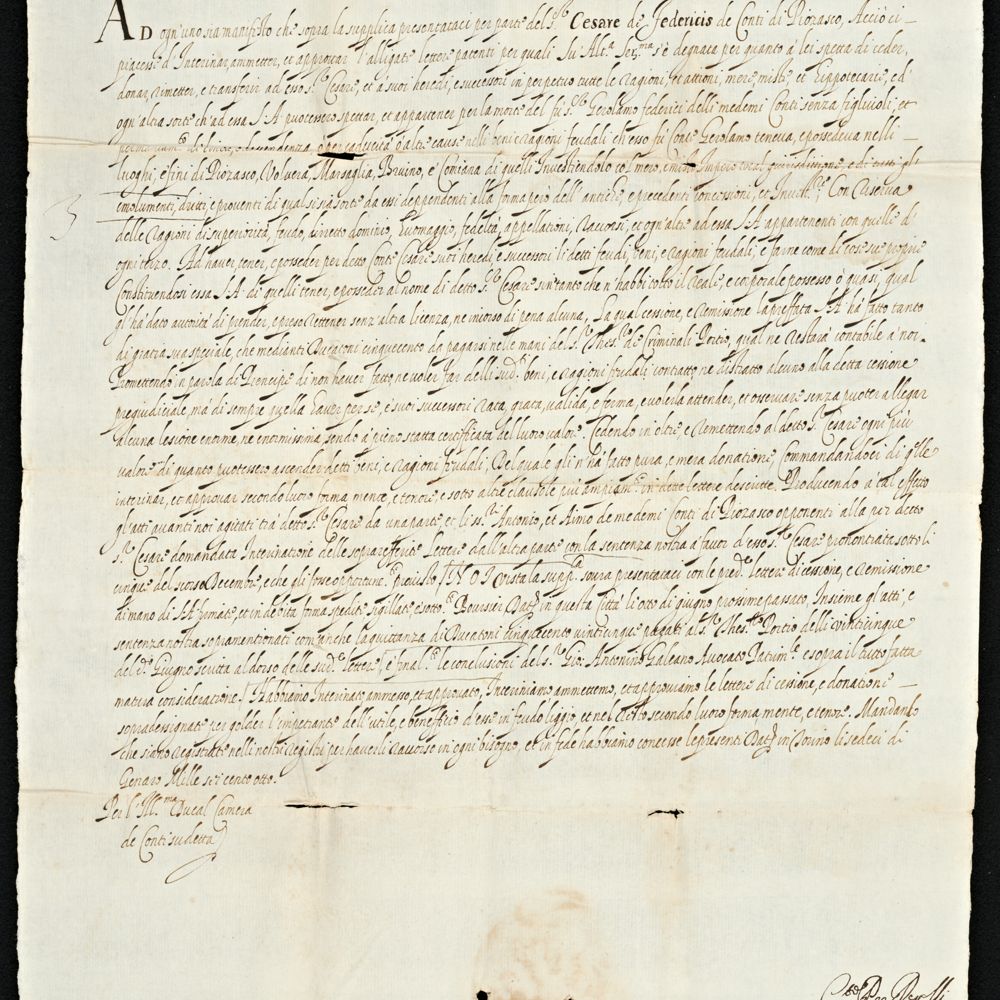 AD ogn'uno sia manifesto che sopra la supplica presentataci per parte del s.r Cesare de Federicis de Conti di Piozasco, Acciò ci
piacesse d'Interinar, ammetter, et approvar l'alligate lettere patenti per quali Su' Alt.a Ser.ma s'è degnata per quanto à lei spetta di ceder,
donar, rimetter, e transferir ad esso s.r Cesare, et à suoi heredi, e successori in perpetuo tutte le Ragioni, et attioni, mere, miste, et hippotecarie, ed'
ogn'altra sorte ch'ad essa S.A puotessero spettar, et appartener per la morte del fu s.r Gerolamo federici delli medemi Conti senza figlivoli, et
ò per caducità ò altre cause nelli beni e Ragioni feudali ch'esso fù Conte Gerolamo teneva, e possedeva nelli
luoghi, e fini di Piozasco, Volvera, Marsaglia, Bruino, e Coniana di quelli Investindolo col mero, e misto Impero total giuridittione, e di tutti gl'
emolumenti, dritti, e proventi di qual si sia sorte da essi dependenti alla forma però dell'antiche, e precedenti concessioni, et Invest.re, Con Riserva
delle Ragioni di superiorità, feudo, diretto dominio, huomaggio, fedeltà, appellationi, Raccorsi, et ogn'altre ad essa S.A appartenenti con quelle d'
ogni terzo. Ad haver, tener, e posseder per detto Conte Cesare suoi heredi e successori li detti feudi, beni, e ragioni feudali, e farne come di cose sue proprie
Constituendosi essa S.A di quelli tener, e posseder al nome di detto s.r Cesare sin tanto che n'habbi tolto il Reale, e corporale possesso ò quasi, qual
gl'hà dato autorità di prender, e preso rettener senz'altra licenza, ne incorso di pena alcuna, La qual cessione, e Remissione la preffata S.A hà fatto tanto
di gratia sua speciale, che mediante Ducatoni cinquecento da pagarsi nelle mani del s.r Thes.re de Criminali Portio, qual ne Restarà contabile a noi.
Promettendo in parola di Prencipe di non haver fatto, ne voler far delli sud.i beni, e ragioni feudali contratto, ne distratto alcuno alla detta cessione
pregiudiciale, mà di sempre quella haver per se, e suoi successori rata, grata, valida, e ferma, e volerla attender, et osservare senza puoter allegar
alcuna lesione enorme, ne enormissima, sendo à pieno statta certifficata del luoro valore. Cedendo in oltre e Remettendo al detto s.r Cesare ogni più
valore di quanto puotessero ascender detti beni, e Ragioni feudali, Del quale gli n'hà fatto pura, e mera donatione, Commandandoci di q.lle
interinar, et approvar secondo luoro forma mente, e tenore, e sotto altre clausole più ampiam.te in dette lettere descritte. Producendo a tal effetto
gl'atti avanti noi agitati trà detto s.r Cesare da una parte, et li ss.ri Antonio, et Aimo de medemi Conti di Piozasco opponenti alla per detto
s.r Cesare domandata Interinatione delle sopraefferite Lettere dall'altra parte con la sentenza nostra à favor d'esso s.r Cesare prononciata sotto li
cinque del scorso Decembre, e che gli fosse opportune. provisto. NOI vista la supp.a soura presentataci con le pred.e lettere di cessione, e remissione
di mano di S.A firmate, et in debita forma spedite sigillate, e sott.e Boursier Dat. in questa Città li otto di giugno prossime passato, Insieme gl'atti, e
sentenza nostra sopramentionati com'anche la quittanza di Ducatoni cinquecento vinticinque pagati al s.r Thes.re Portio delli vinticinque
del d.o Giugno scritta al dorso delle sud.e lettere, è final.te le conclusioni del s.r Gio: Antonino Galeano Avocato Patrim.le e sopra il tutto fatta
matura consideratione. Habbiamo Interinato, ammesso, et approvato, Interiniamo ammettemo, et approviamo le lettere di cessione, e donatione
sovradesignate per golder l'impetrante dell'utile, e beneffitio d'esse in feudo liggio, et nel Resto secondo luoro forma, mente, e tenore. Mandando
che siano registrate nelli nostri registri per haverli raccorso in ogni bisogno, et in fede habbiamo concesse le presenti Dat. in Torino li sedeci di
Genaro Mille sei cento otto.
Per l'Ill.ma Ducal Camera
de Conti sudetta